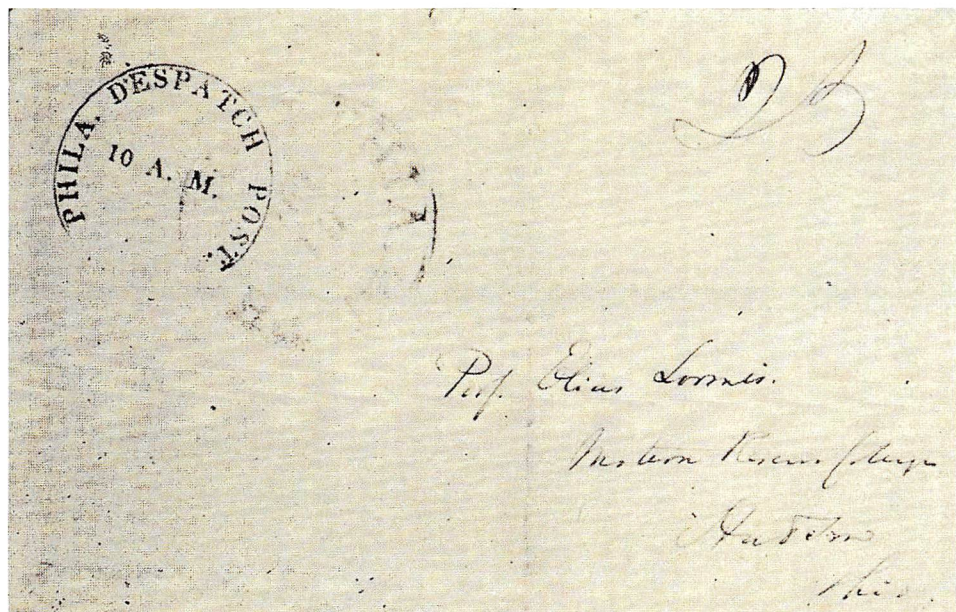 PHILA. DESPATCH POST.
10 A. M.
25
Prof. Elias Loomis.
Western Reserve College
Hudson
Ohio.